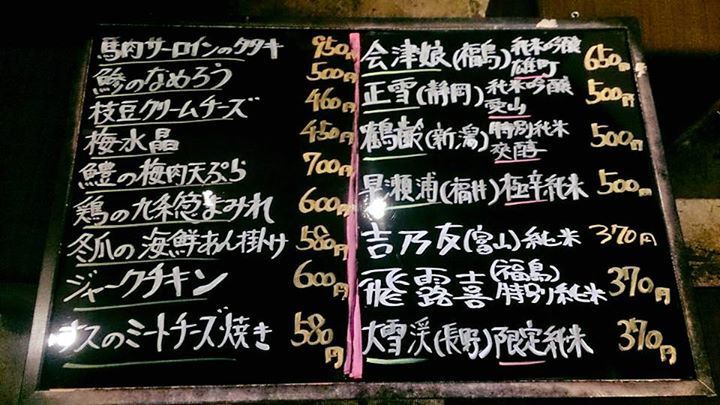 馬肉サーロインのタタキ 950円
鯵のなめろう 500円
枝豆クリームチーズ 460円
梅水晶 450円
鱧の梅肉天ぷら 700円
鶏の九条葱まみれ 600円
冬瓜の海鮮あん掛け 580円
ジャークチキン 600円
ナスのミートチーズ焼き 580円
会津娘(福島)純米吟醸 雄町 650円
正雪(静岡)純米吟醸 愛山 500円
鶴齢(新潟)特別純米 発酵 500円
早瀬浦(福井)極辛純米 500円
吉乃友(富山)純米 370円
飛露喜(福島)特別純米 370円
大雪渓(長野)限定純米 370円